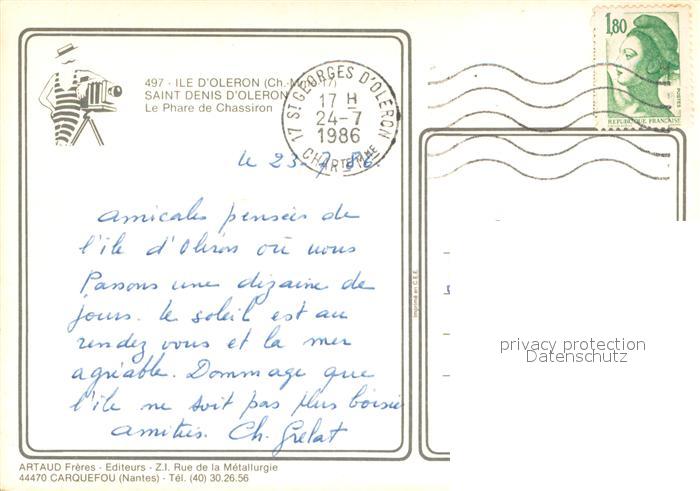 497 - ILE D'OLERON (Ch.-M
SAINT DENIS D'OLERON
Le Phare de Chassiron
17 ST GEORGES D'OLERON
17 H
24-7
1986
CHARTE MME
1,80
POSTES
REPUBLIQUE FRANÇAISE
le 23-7 86.
Amicales pensées de
l'île d'Oléron où nous
Passons une dizaine de
jours. le soleil est au
rendez vous et la mer
agréable. Dommage que
l'île ne soit pas plus boisée
amitiés. Ch. Grelat
Imprimé en C.E.E.
privacy protection
Datenschutz
ARTAUD Frères - Editeurs - Z.I. Rue de la Métallurgie
44470 CARQUEFOU (Nantes) - Tél. (40) 30.26.56